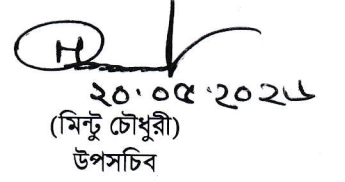 ২০.০৫.২০২৬
(মিন্টু চৌধুরী)
উপসচিব